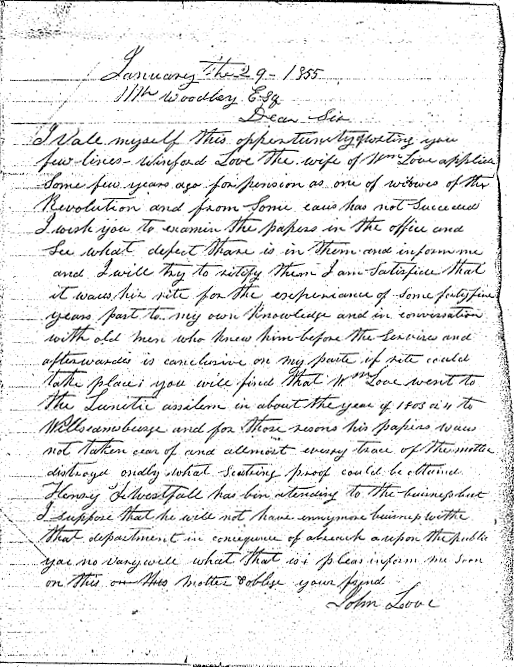 January the 29 - 1855
Mr Woodbery Esq
Dear Sir
I Vale myself this oppertunity of writing you
few lines - Winford Love the wife of Wm Love applied
Some few years ago for pension as one of widows of the
Revolution and from Some caus has not Succeed
I wish you to examin the papers in the office and
See what defect thare is in them and inform me
and I will try to ritify them I am Satisfide that
it waus his rite for the experiance of Some forty five
years past to my own Knowledge and in conversation
with old men who knew him before the Servires and
afterwardes is conclusive on my parte if rite could
take place you will find that Wm Love went to
the Lunitic assilem in about the year of 1803 or 4 to
Williamsburge and for those resons his papers waus
not taken cear of and allmost evrry trace of the matter
distroyd ondly what Scatring proof could be obtaind
Henry Westfall has bin atending to the buiness but
I suppose that he will not have ennymore buiness withe
that department in conequence of a breach upon the public
you no vary well what that is pleas inform me Soon
on this matter & oblige your frend
John Love